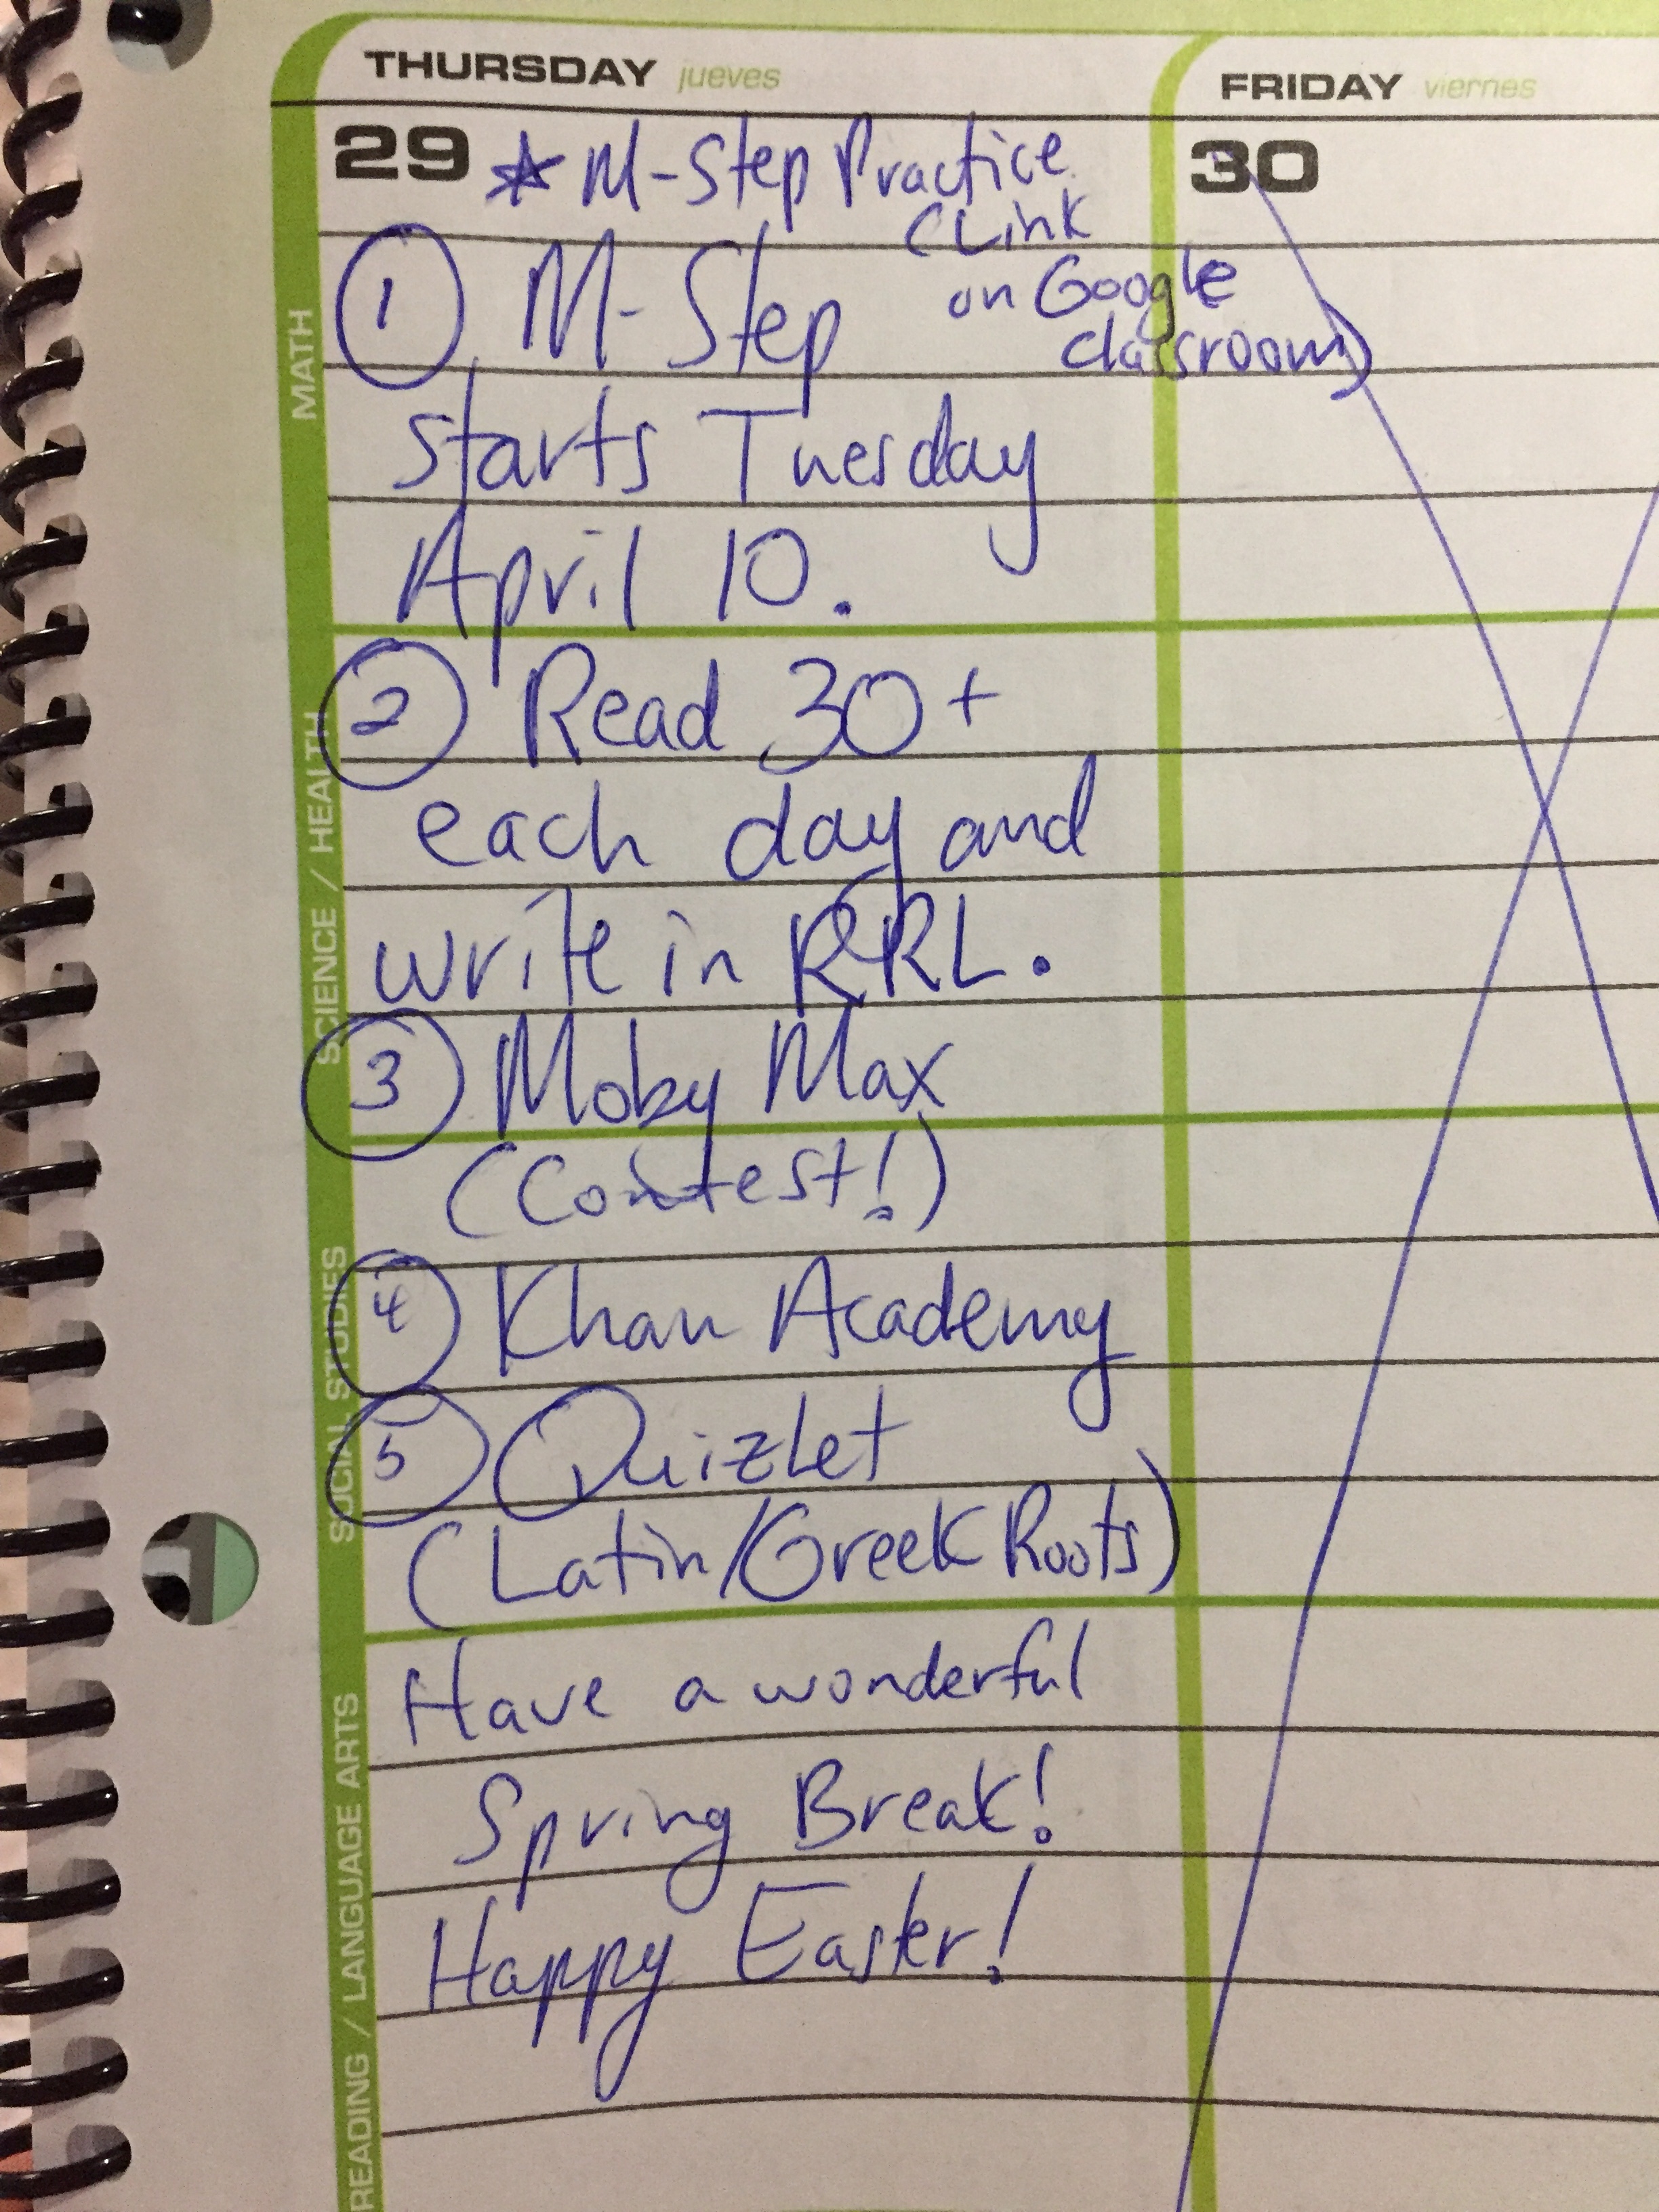 THURSDAY jueves
29 ☆ M-Step Practice
(Link
on Google
classroom)
① M-Step
starts Tuesday
April 10.
② Read 30+
each day and
write in RRL.
③ Moby Max
(Contest!)
④ Khan Academy
⑤ Quizlet
(Latin/Greek Roots)
Have a wonderful
Spring Break!
Happy Easter!
FRIDAY viernes
30
MATH
SCIENCE / HEALTH
SOCIAL STUDIES
READING / LANGUAGE ARTS